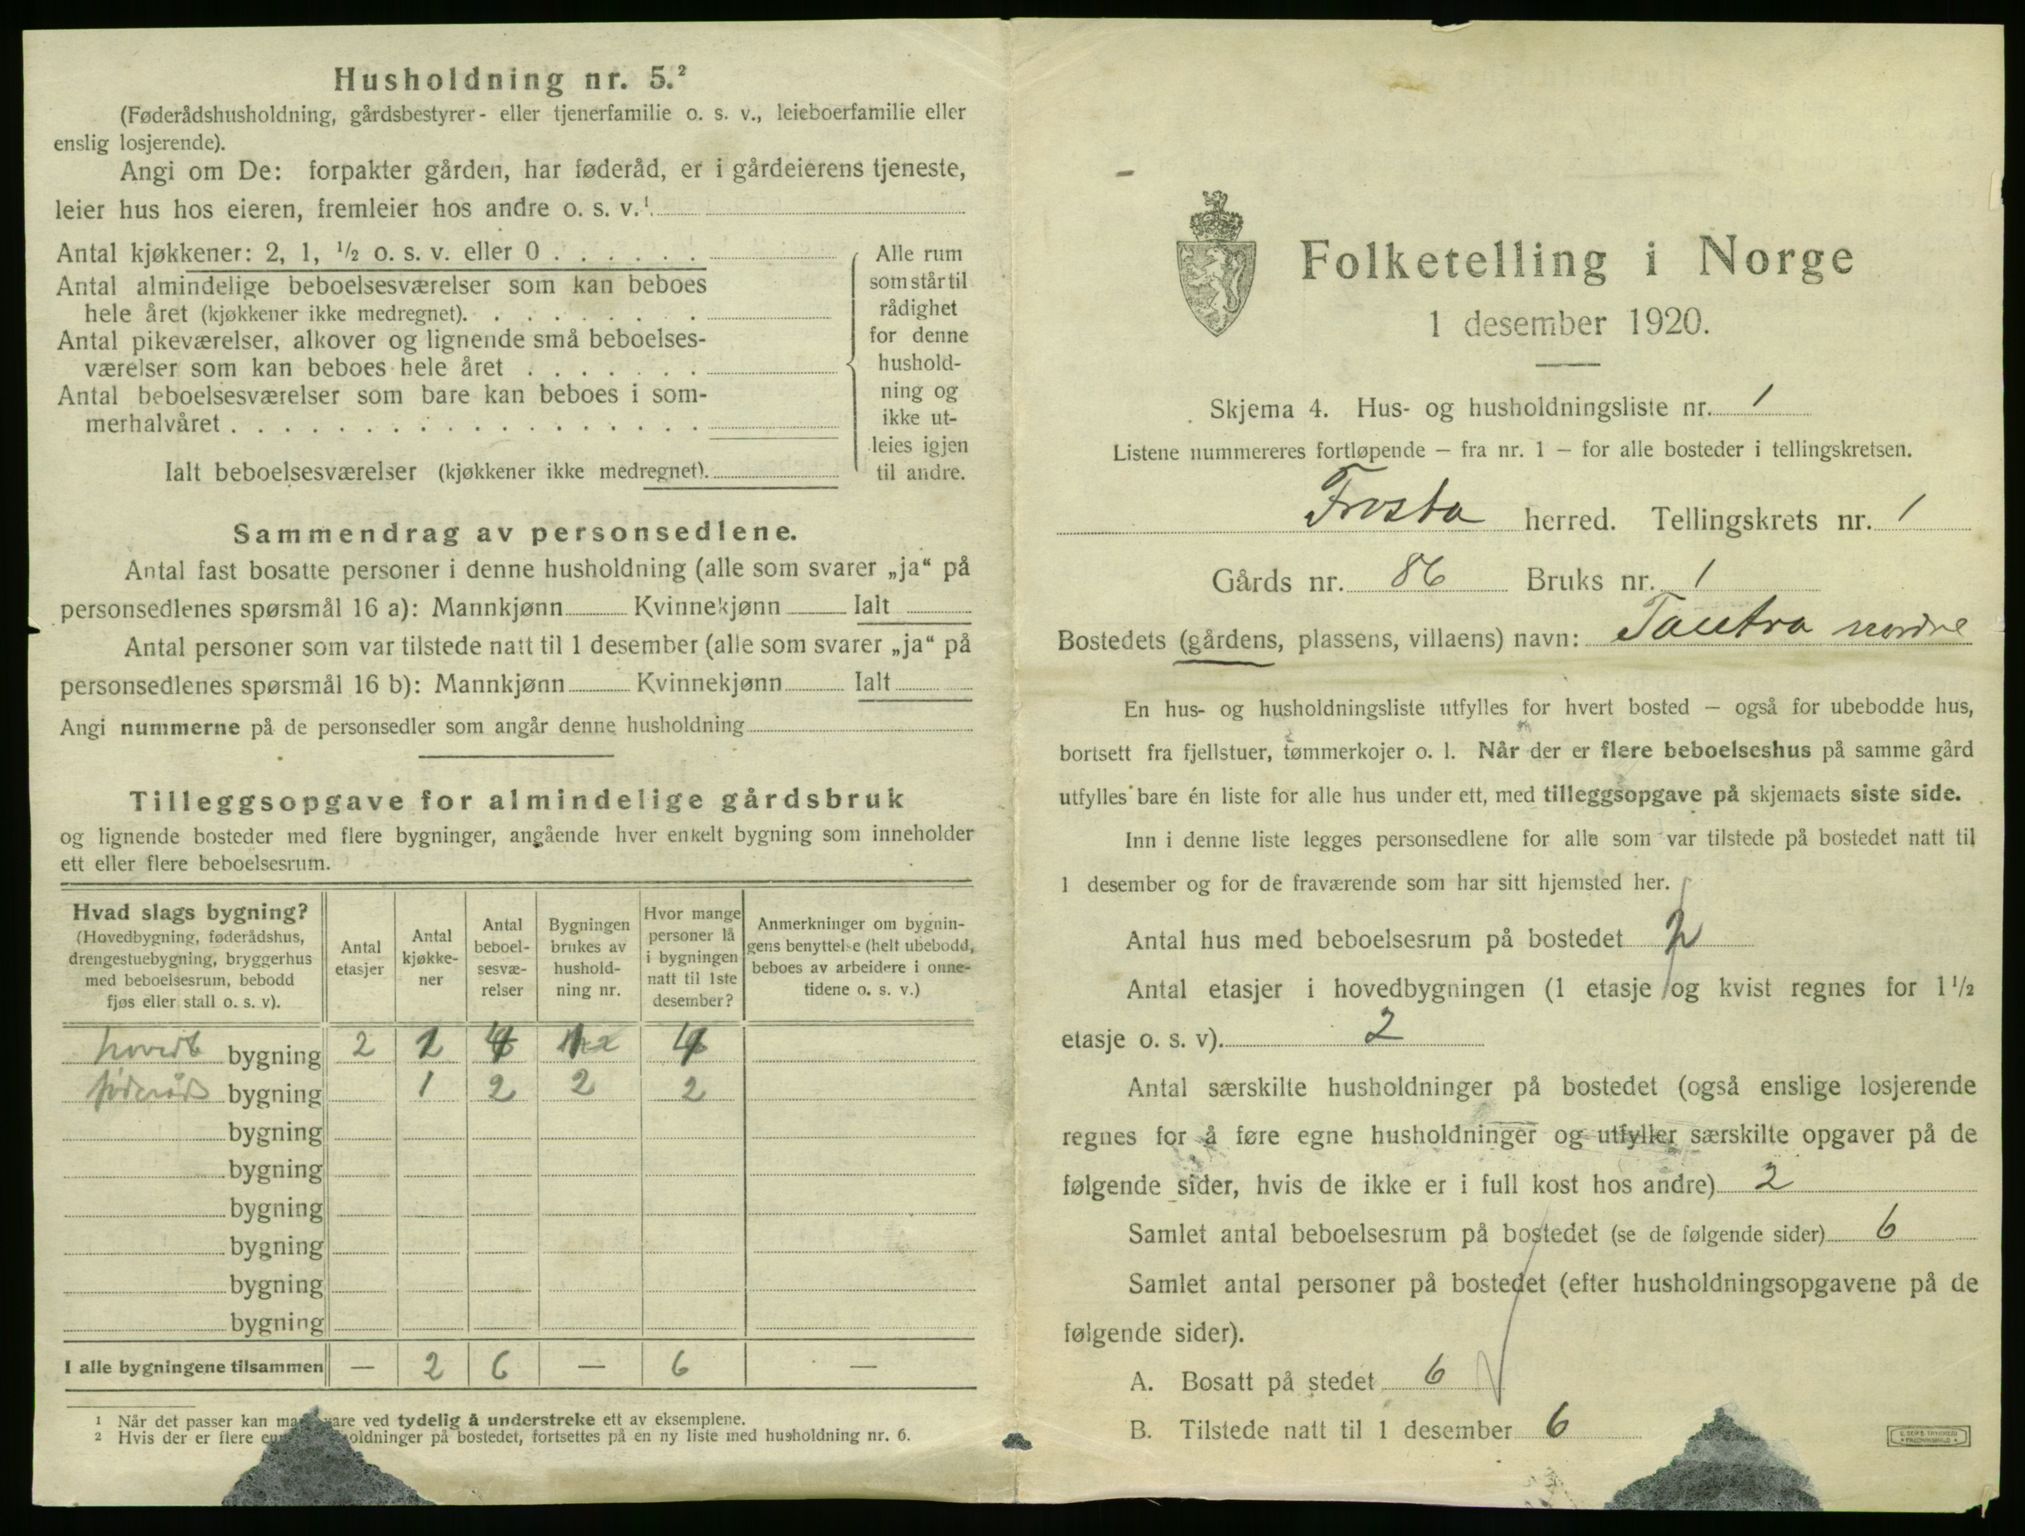 Husholdning nr. 5.²
(Føderådshusholdning, gårdsbestyrer- eller tjenerfamilie o. s. v., leieboerfamilie eller
enslig losjerende).
Angi om De: forpakter gården, har føderåd, er i gårdeierens tjeneste,
leier hus hos eieren, fremleier hos andre o. s. v.¹
Antal kjøkkener: 2, 1, ½ o. s. v. eller 0 . . . . . .
Antal almindelige beboelsesværelser som kan beboes
hele året (kjøkkener ikke medregnet). . . . . . . .
Antal pikeværelser, alkover og lignende små beboelses-
værelser som kan beboes hele året . . . . . . .
Antal beboelsesværelser som bare kan beboes i som-
merhalvåret . . . . . . . . . . . . . . . . . .
Ialt beboelsesværelser (kjøkkener ikke medregnet).
Alle rum
som står til
rådighet
for denne
hushold-
ning og
ikke ut-
leies igjen
til andre.
Sammendrag av personsedlene.
Antal fast bosatte personer i denne husholdning (alle som svarer „ja“ på
personsedlenes spørsmål 16 a): Mannkjønn Kvinnekjønn Ialt
Antal personer som var tilstede natt til 1 desember (alle som svarer „ja“ på
personsedlenes spørsmål 16 b): Mannkjønn Kvinnekjønn Ialt
Angi nummerne på de personsedler som angår denne husholdning
Tilleggsopgave for almindelige gårdsbruk
og lignende bosteder med flere bygninger, angående hver enkelt bygning som inneholder
ett eller flere beboelsesrum.
Hvad slags bygning?
(Hovedbygning, føderådshus,
drengestuebygning, bryggerhus
med beboelsesrum, bebodd
fjøs eller stall o. s. v).
Antal
etasjer
Antal
kjøkke-
ner
Antal
beboel-
sesvæ-
relser
Bygningen
brukes av
hushold-
ning nr.
Hvor mange
personer lå
i bygningen
natt til 1ste
desember?
Anmerkninger om bygnin-
gens benyttelse (helt ubebodd,
beboes av arbeidere i onne-
tidene o. s. v.)
bygning 2 1 4 1 4
føderåds bygning 1 2 2 2
bygning
bygning
bygning
bygning
bygning
bygning
I alle bygningene tilsammen — 2 6 — 6 —
¹ Når det passer kan svare ved tydelig å understreke ett av eksemplene.
² Hvis der er flere husholdninger på bostedet, fortsettes på en ny liste med husholdning nr. 6.
Folketelling i Norge
1 desember 1920.
Skjema 4. Hus- og husholdningsliste nr. 1
Listene nummereres fortløpende – fra nr. 1 – for alle bosteder i tellingskretsen.
Frosta herred. Tellingskrets nr. 1
Gårds nr. 86 Bruks nr. 1
Bostedets (gårdens, plassens, villaens) navn: Tautra nordre
En hus- og husholdningsliste utfylles for hvert bosted – også for ubebodde hus,
bortsett fra fjellstuer, tømmerkojer o. l. Når der er flere beboelseshus på samme gård
utfylles bare én liste for alle hus under ett, med tilleggsopgave på skjemaets siste side.
Inn i denne liste legges personsedlene for alle som var tilstede på bostedet natt til
1 desember og for de fraværende som har sitt hjemsted her.
Antal hus med beboelsesrum på bostedet 2
Antal etasjer i hovedbygningen (1 etasje og kvist regnes for 1½
etasje o. s. v). 2
Antal særskilte husholdninger på bostedet (også enslige losjerende
regnes for å føre egne husholdninger og utfyller særskilte opgaver på de
følgende sider, hvis de ikke er i full kost hos andre) 2
Samlet antal beboelsesrum på bostedet (se de følgende sider) 6
Samlet antal personer på bostedet (efter husholdningsopgavene på de
følgende sider).
A. Bosatt på stedet 6
B. Tilstede natt til 1 desember 6